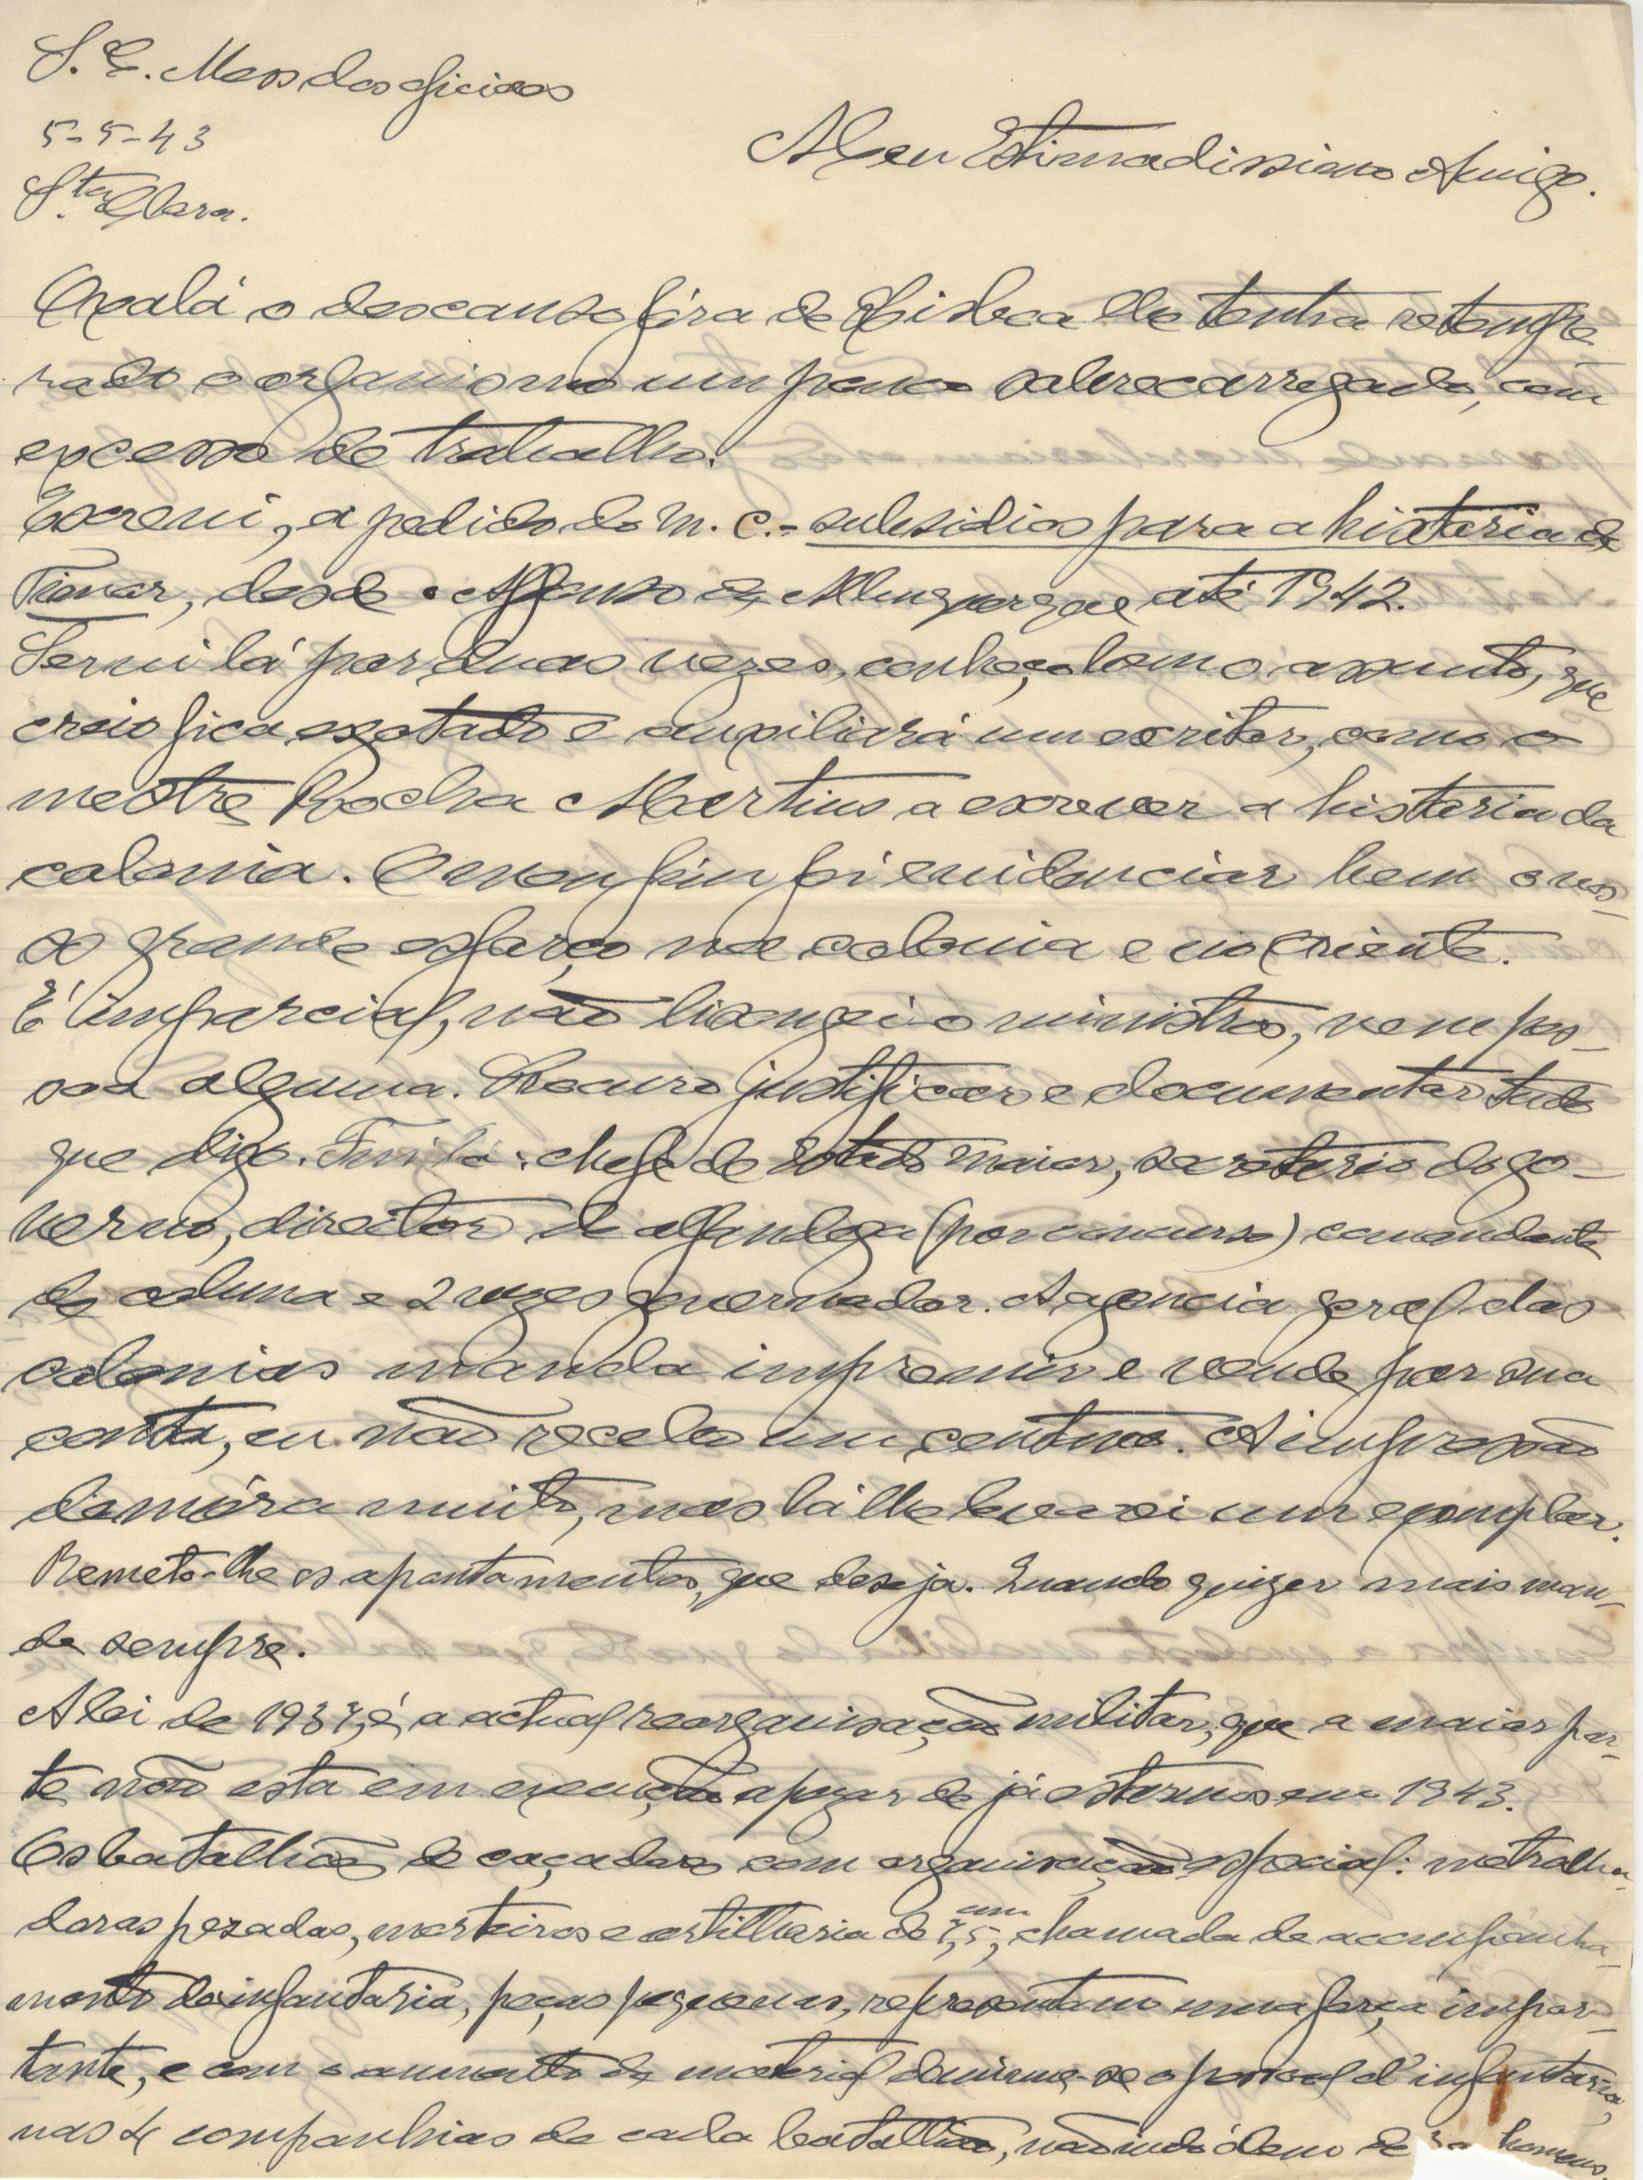 S. C. Mess dos oficiaes
5-5-43
Sta Clara.
Meu Estimadissimo Amigo.
Oxalá o descanso fóra de Lisboa lhe tenha retempe
rado o organismo um pouco sobrecarregado, com
excesso de trabalho.
Escrevi, a pedido do m. c. - subsidios para a historia de
Timor, desde Affonso de Albuquerque até 1942.
Servi lá por duas vezes, conheço bem o assunto, que
creio fica esgotado e auxiliará um escritor, como o
mestre Rocha Martins a escrever a historia da
colonia. O meu fim foi evidenciar bem o nos-
so grande esforço na colonia e no Oriente.
É imparcial, não lisongeio o ministro, nem pes-
soa alguma. Procuro justificar e documentar tudo
que digo. Fui lá: chefe de Estado maior, secretario do go-
verno, director de alfandega (por concurso) comandante
de coluna e 2 vezes governador. A agencia geral das
colonias manda impremir e vende por sua
conta, eu não recebo um centavo. A impressão
demóra muito, mas lá lhe levarei um exemplar.
Remeto-lhe os apontamentos, que deseja. Quando quizer mais man-
de sempre.
A lei de 1937, é, a actual reorganisação militar, que a maior par-
te não esta em execução apezar de já estarmos em 1943.
Os batalhões de caçadores com organisação especial: metralha-
doras pezadas, morteiros e artilharia de 7,5 cm, chamada de acompanha-
mento da infantaria, peças pequenas, representam uma força impor-
tante, e com o aumento de material deminue-se o pessoal d'infantaria,
nas 4 companhias de cada batalhão, não indo álem de homens.